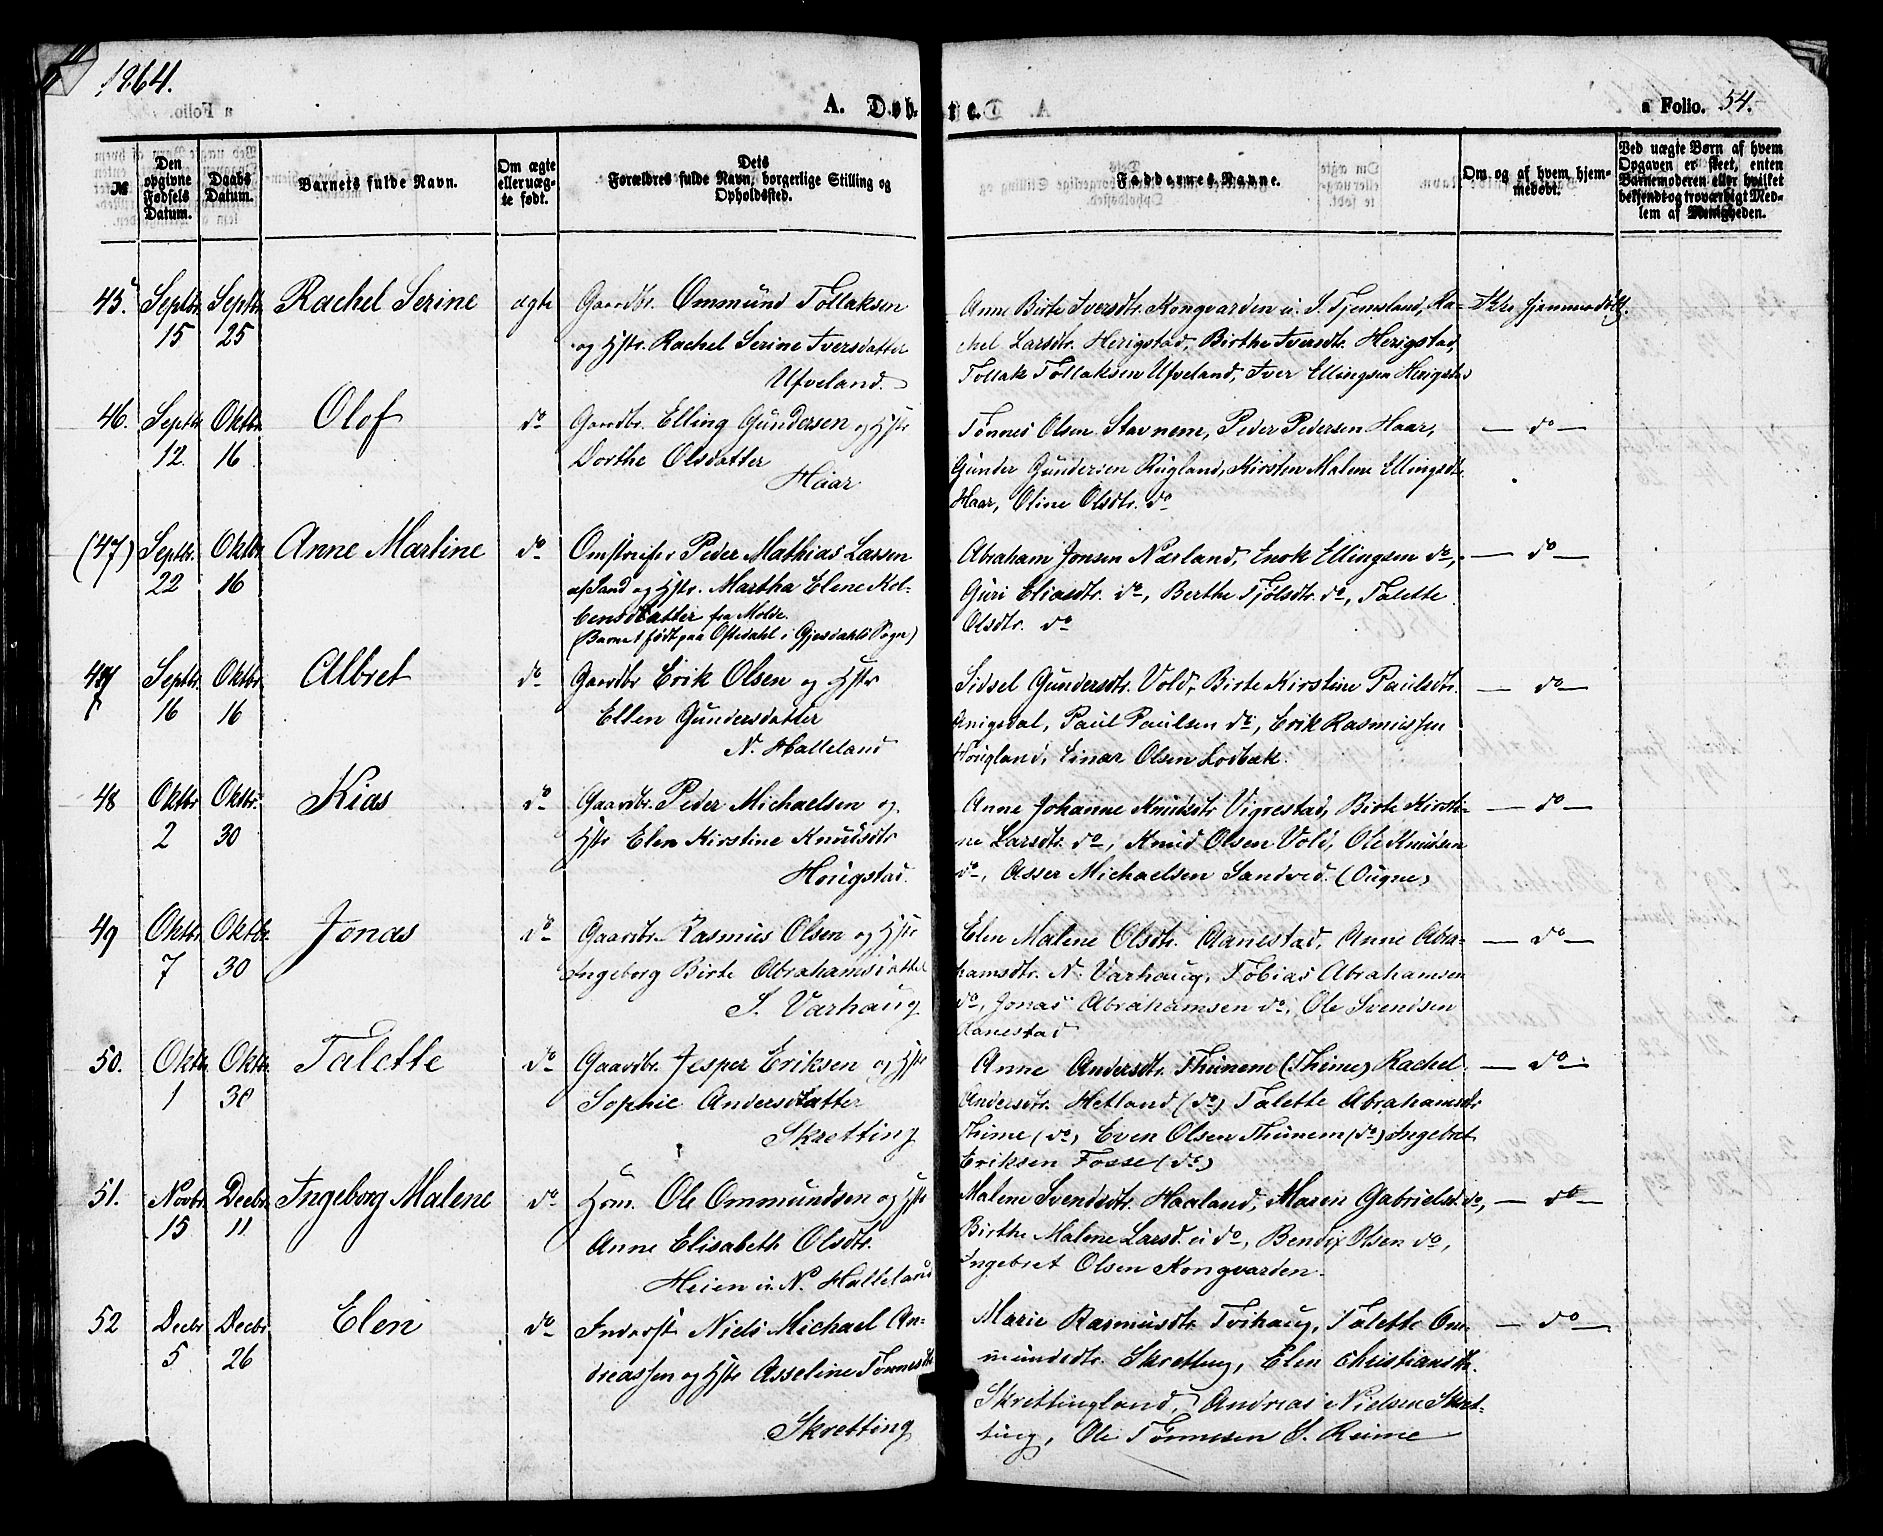 1864.
A. Døbte.
a Folio. 54.
№
Den opgivne Fødsels Datum.
Daabs Datum.
Barnets fulde Navn.
Om ægte eller uægte født.
Dets Forældres fulde Navn, borgerlige Stilling og Opholdssted.
Faddernes Navne.
Om og af hvem hjemmedøbt.
Ved uægte Børn af hvem Opgaven er skeet, enten Barnemoderen eller hvilket bekjendt og troværdigt Medlem af Menigheden.
45. Septbr. 15 Septbr. 25 Rachel Serine ægte
Gaardbr. Ommund Tollaksen
og Hstr. Rachel Serine Iversdatter
Ufveland.
Anne Birte Iversdtr. Kongvarden u. S. Tjemsland, Ra-
chel Larsdtr. Herigstad, Birthe Iversdtr. Herigstad,
Tollak Tollaksen Ufveland, Iver Ellingsen Herigstad
Ikke hjemmedøbt.
46. Septbr. 12. Oktbr. 16 Olof do
Gaardbr. Elling Gundersen og Hstr
Dorthe Olsdatter
Haar
Tønnes Olsen Stavnem, Peder Pedersen Haar,
Gunder Gundersen Rugland, Kirsten Malene Ellingsdtr.
Haar, Oline Olsdtr. do
— do —
(47) Septbr. 22 Oktbr. 16 Anne Martine do
Omstreifer Peder Mathias Larsen
og Hstr. Martha Elene Kol-
bensdatter fra Molde.
(Barnet født paa Oftedahl i Gjesdahls Sogn)
Abraham Jonsen Nærland, Enok Ellingsen do,
Guri Eliasdtr. do, Berthe Tjølsdtr. do, Talette
Olsdtr. do
— do —
47 Septbr. 16 Oktbr. 16 Albret do
Gaardbr Erik Olsen og Hstr
Ellen Gundersdatter
N. Halleland
Sidsel Gundersdtr. Vold, Birte Kirstine Paulsdtr.
Anigsdal, Paul Paulsen do, Erik Rasmussen
Hougland, Einar Olsen Lodbæk.
— do —
48 Oktbr 2 Oktbr. 30 Kias do
Gaardbr. Peder Michaelsen og
Hstr Elen Kirstine Knudsdtr
Hougstad.
Anne Johanne Knudsdtr Vigrestad, Birte Kirsti-
ne Larsdtr. do, Knud Olsen Vold, Ole Knudsen
do, Asser Michaelsen Sandved. (Ougne)
— do —
49 Oktbr. 7 Oktbr. 30 Jonas do
Gaardbr. Rasmus Olsen og Hstr
Ingeborg Birte Abrahamsdatter
S. Varhaug
Elen Malene Olsdtr. Aanestad, Anne Abra-
hamsdtr. N. Varhaug, Tobias Abrahamsen
do, Jonas Abrahamsen do, Ole Svendsen
Aanestad
— do —
50. Oktbr. 1 Oktbr. 30 Talette do
Gaardbr. Jesper Eriksen og Hstr
Sophie Andersdatter
Skretting
Anne Andersdtr. Thunem (Thime) Rachel
Andersdtr. Hetland (do) Talette Abrahamsdtr
Thime (do) Even Olsen Thunem (do) Ingebret
Eriksen Fosse (do)
— do —
51. Novbr. 15 Decbr. 11 Ingeborg Malene do
Hsm. Ole Ommundsen og Hstr
Anne Elisabeth Olsdtr.
Heien u. N. Halleland
Malene Svendsdtr. Haaland, Maren Gabrielsd. do,
Birthe Malene Larsd. u do, Bendix Olsen do,
Ingebret Olsen Kongvarden.
— do —
52 Decbr. 5 Decbr. 26 Elen do
Inderst Niels Michael An-
dreassen og Hstr Asseline Tønnesdtr
Skretting
Marie Rasmusdtr. Tvihaug, Talette Om-
mundsdtr. Skretting, Elen Christiansdtr.
Skrettingland, Andreas Nielsen Skret-
ting, Ole Tønnesen S. Reime
— do —